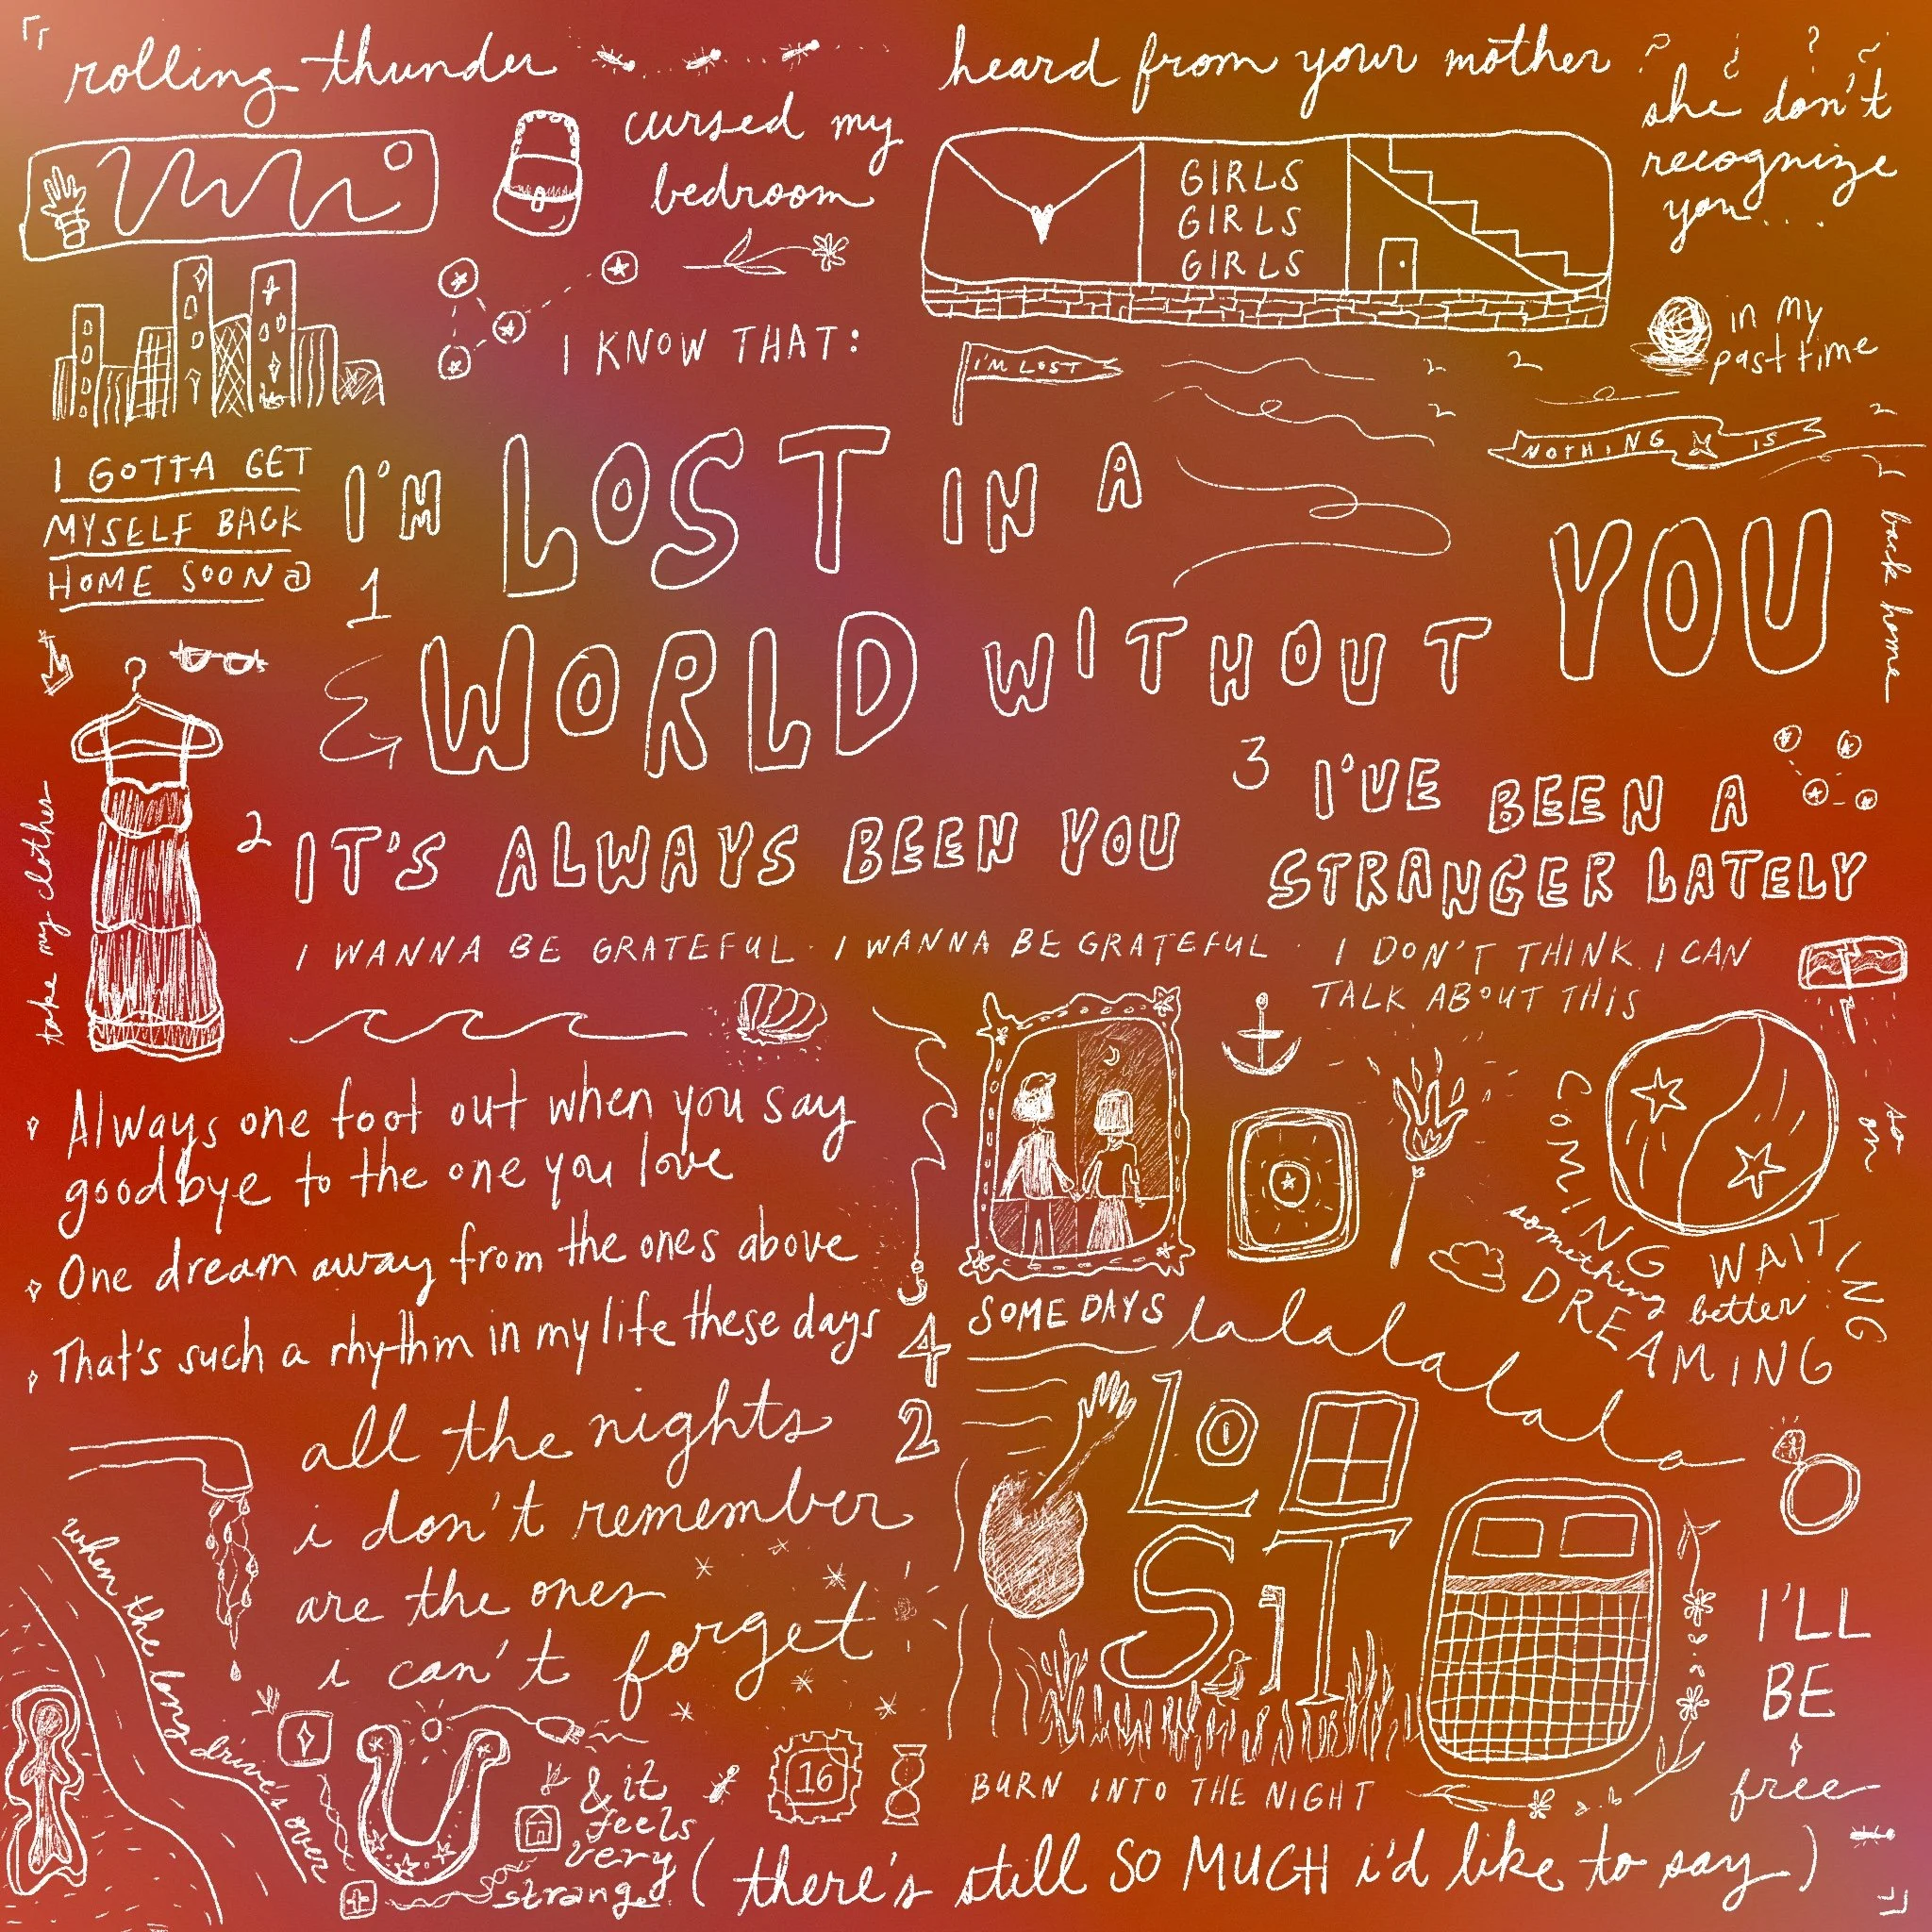 rolling thunder
cursed my
bedroom
heard from your mother
? ? ?
she don't
recognize
you...
GIRLS
GIRLS
GIRLS
I KNOW THAT:
in my
past time
I'M LOST
NOTHING IS
I GOTTA GET
MYSELF BACK
HOME SOON
I'M LOST IN A
1
WORLD WITHOUT YOU
back home
take my clothes
2 IT'S ALWAYS BEEN YOU
3 I'VE BEEN A
STRANGER LATELY
I WANNA BE GRATEFUL · I WANNA BE GRATEFUL ·
I DON'T THINK I CAN
TALK ABOUT THIS
Always one foot out when you say
goodbye to the one you love
One dream away from the ones above
That's such a rhythm in my life these days
4
2
SOME DAYS
lalalalalalala
COMING
something
better
WAITING
DREAMING
so
on
all the nights
i don't remember
are the ones
i can't forget
when the long drive's over
LO
ST
I'LL
BE
free
& it
feels
very
strange
16
BURN INTO THE NIGHT
(there's still SO MUCH i'd like to say)